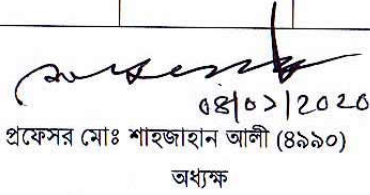 ০৪|০১|2020
প্রফেসর মোঃ শাহজাহান আলী (৪৯৯০)
অধ্যক্ষ